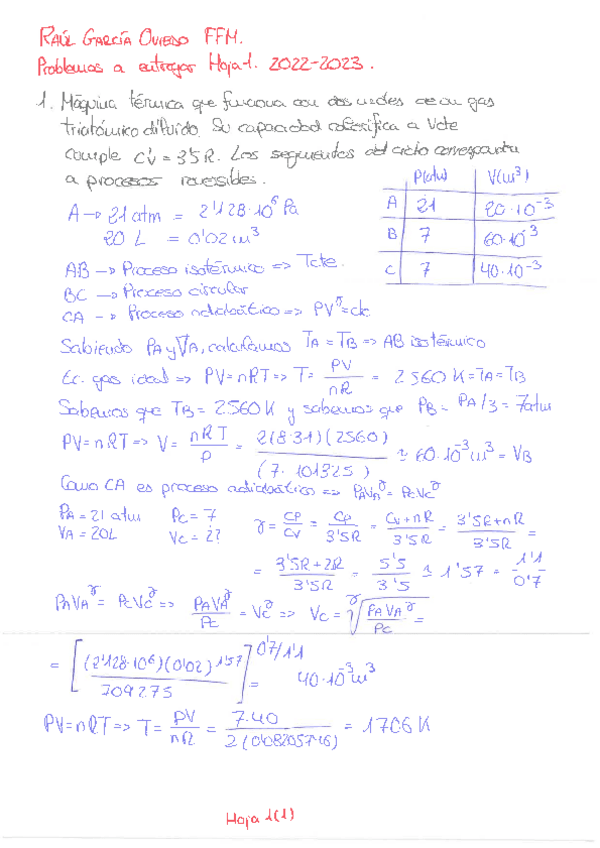 RAÚL GARCÍA OVIEDO FFM.
Problemas a entregar Hoja 1. 2022-2023.
1. Máquina térmica que funciona con dos moles de un gas
triatómico diluido. Su capacidad calorífica a Vcte
cumple C'v = 3'5R. Los segmentos del ciclo corresponden
a procesos reversibles.
P(atm) V(m³)
A 21 20·10⁻³
B 7 60·10⁻³
C 7 40·10⁻³
A → 21 atm = 2'128·10⁶ Pa
20 L = 0'02 m³
AB → Proceso isotérmico => Tcte.
BC → Proceso circular
CA → Proceso adiabático => PV^γ = cte
Sabiendo PA y VA, calculamos TA = TB => AB isotérmico
Ec. gas ideal => PV=nRT => T = PV/nR = 2560 K = TA = TB
Sabemos que TB = 2560 K y sabemos que PB = PA/3 = 7atm
PV=nRT => V = nRT/P = 2(8'31)(2560)/(7·101325) ≃ 60·10⁻³ m³ = VB
Como CA es proceso adiabático => PAVA^γ = PCVC^γ
PA = 21 atm PC = 7 γ = CP/CV = CP/3'5R = CV+nR/3'5R = 3'5R+nR/3'5R =
VA = 20L VC = ¿?
= 3'5R+2R/3'5R = 5'5/3'5 ≃ 1'57 = 1'1/0'7
PAVA^γ = PCVC^γ => PAVA^γ/PC = VC^γ => VC = ^γ√(PAVA^γ/PC) =
= [(2'128·10⁶)(0'02)^1'57/709275]^0'7/1'1 = 40·10⁻³ m³
PV=nRT => T = PV/nR = 7·40/2(0'08205746) = 1706 K
Hoja 1(1)